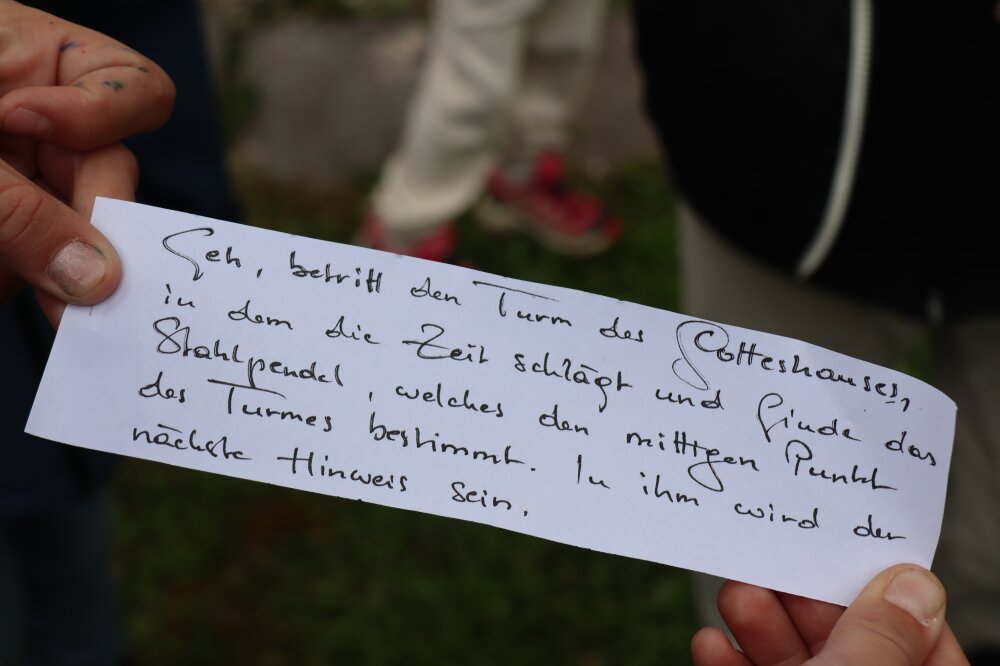 Geh, betritt den Turm des Gotteshauses,
in dem die Zeit schlägt und finde das
Stahlpendel, welches den mittigen Punkt
des Turmes bestimmt. In ihm wird der
nächste Hinweis sein.